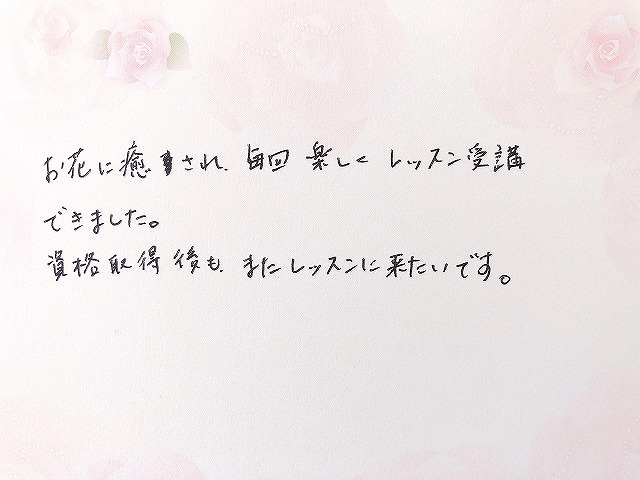 お花に癒され、毎回楽しくレッスン受講
できました。
資格取得後も、またレッスンに来たいです。